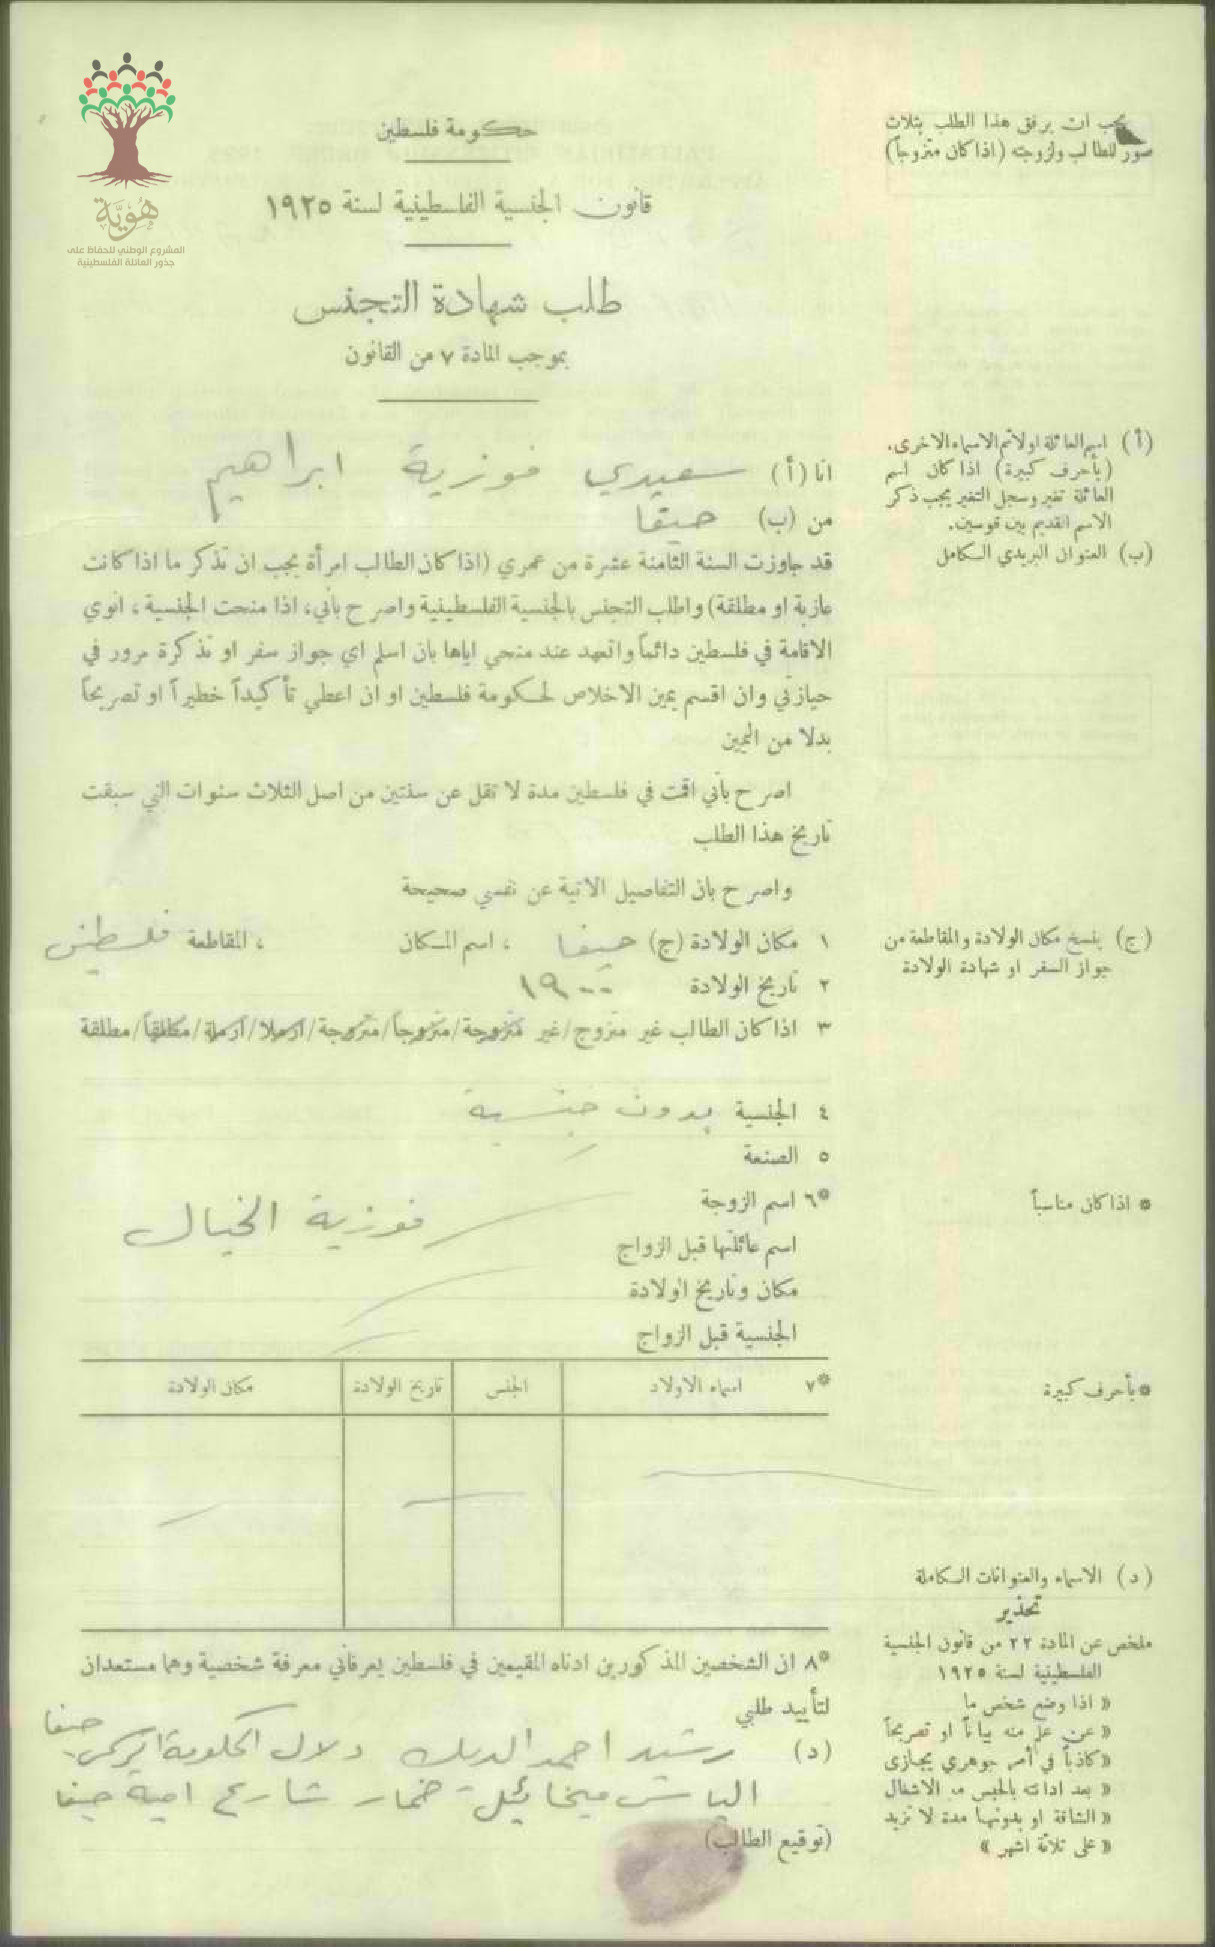 هُوِيَّة
المشروع الوطني للحفاظ على
جذور العائلة الفلسطينية
حكومة فلسطين
يجب ان يرفق هذا الطلب بثلاث
صور للطالب ولزوجته (اذا كان متزوجاً)
قانون الجنسية الفلسطينية لسنة ١٩٢٥
طلب شهادة التجنس
بموجب المادة ٧ من القانون
(أ) اسم العائلة اولا ثم الاسماء الاخرى.
(بأحرف كبيرة) اذا كان اسم
العائلة تغير وسجل التغير يجب ذكر
الاسم القديم بين قوسين.
(ب) العنوان البريدي الكامل
انا (أ) سعيدي فوزية ابراهيم
من (ب) حيفا
قد جاوزت السنة الثامنة عشرة من عمري (اذا كان الطالب امرأة يجب ان تذكر ما اذا كانت
عازبة او مطلقة) واطلب التجنس بالجنسية الفلسطينية واصرح بأني، اذا منحت الجنسية، انوي
الاقامة في فلسطين دائماً واتعهد عند منحي اياها بان اسلم اي جواز سفر او تذكرة مرور في
حيازتي وان اقسم يمين الاخلاص لحكومة فلسطين او ان اعطي تأكيداً خطيراً او تصريحاً
بدلا من اليمين
اصرح بأني اقمت في فلسطين مدة لا تقل عن سنتين من اصل الثلاث سنوات التي سبقت
تاريخ هذا الطلب
واصرح بان التفاصيل الاتية عن نفسي صحيحة
(ج) ينسخ مكان الولادة والمقاطعة من
جواز السفر او شهادة الولادة
١ مكان الولادة (ج) حيفا ، اسم المكان ، المقاطعة فلسطين
٢ تاريخ الولادة ١٩٠٠
٣ اذا كان الطالب غير متزوج/غير متزوجة/متزوجاً/متزوجة/ارملا/ارملة/مطلقاً/مطلقة
٤ الجنسية بدون جنسية
٥ الصنعة
*٦ اسم الزوجة
فوزية الخيال
* اذا كان مناسباً
اسم عائلتها قبل الزواج
مكان وتاريخ الولادة
الجنسية قبل الزواج
*٧ اسماء الاولاد الجنس تاريخ الولادة مكان الولادة
* بأحرف كبيرة
(د) الاسماء والعنوانات الكاملة
تحذير
ملخص عن المادة ٢٢ من قانون الجنسية
الفلسطينية لسنة ١٩٢٥
« اذا وضع شخص ما
« عن علم منه بياناً او تصريحاً
« كاذباً في أمر جوهري يجازى
« بعد ادانته بالحبس مع الاشغال
« الشاقة او بدونها مدة لا تزيد
« على ثلاثة اشهر »
*٨ ان الشخصين المذكورين ادناه المقيمين في فلسطين يعرفاني معرفة شخصية وهما مستعدان
لتأييد طلبي
(د) رشيد احمد الديك دلال الحكومة حيفا
الياس ميخائيل خمار شارع امية حيفا
(توقيع الطالب)